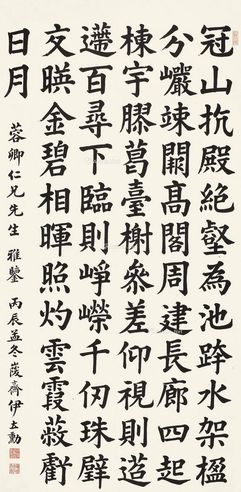 冠山抗殿絕壑為池跨水架楹
分巖竦闕高閣周建長廊四起
棟宇膠葛臺榭參差仰視則迢
遰百尋下臨則崢嶸千仞珠璧
交暎金碧相暉照灼雲霞蔽虧
日月
蓉卿仁兄先生 雅鑒 丙辰孟冬 伊立勳